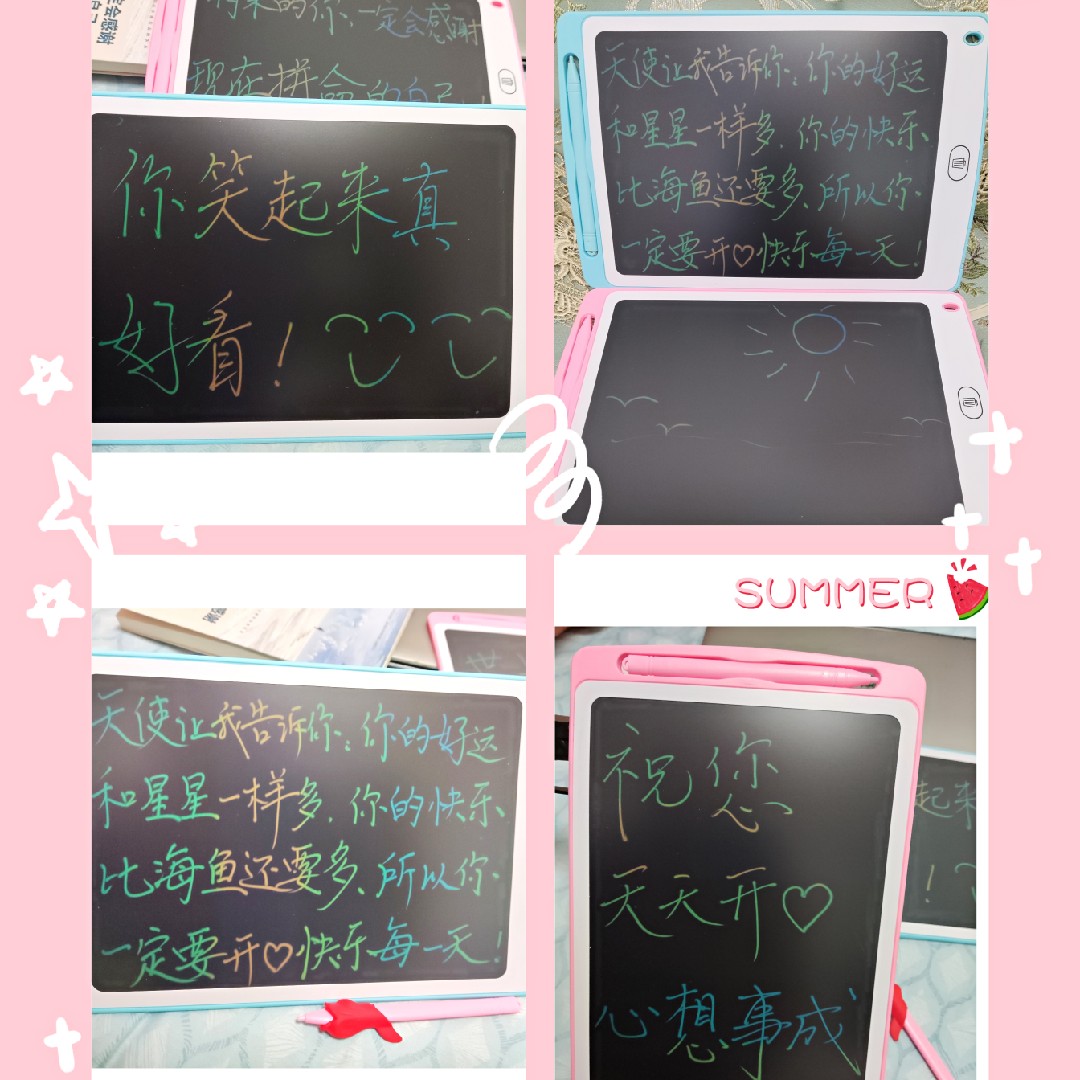 将来的你,一定会感谢
现在拼命的自己!
你笑起来真
好看!
天使让我告诉你:你的好运
和星星一样多,你的快乐
比海鱼还要多,所以你
一定要开♡快乐每一天!
SUMMER
天使让我告诉你:你的好运
和星星一样多,你的快乐
比海鱼还要多,所以你
一定要开♡快乐每一天!
祝您
天天开♡
心想事成
起来
!